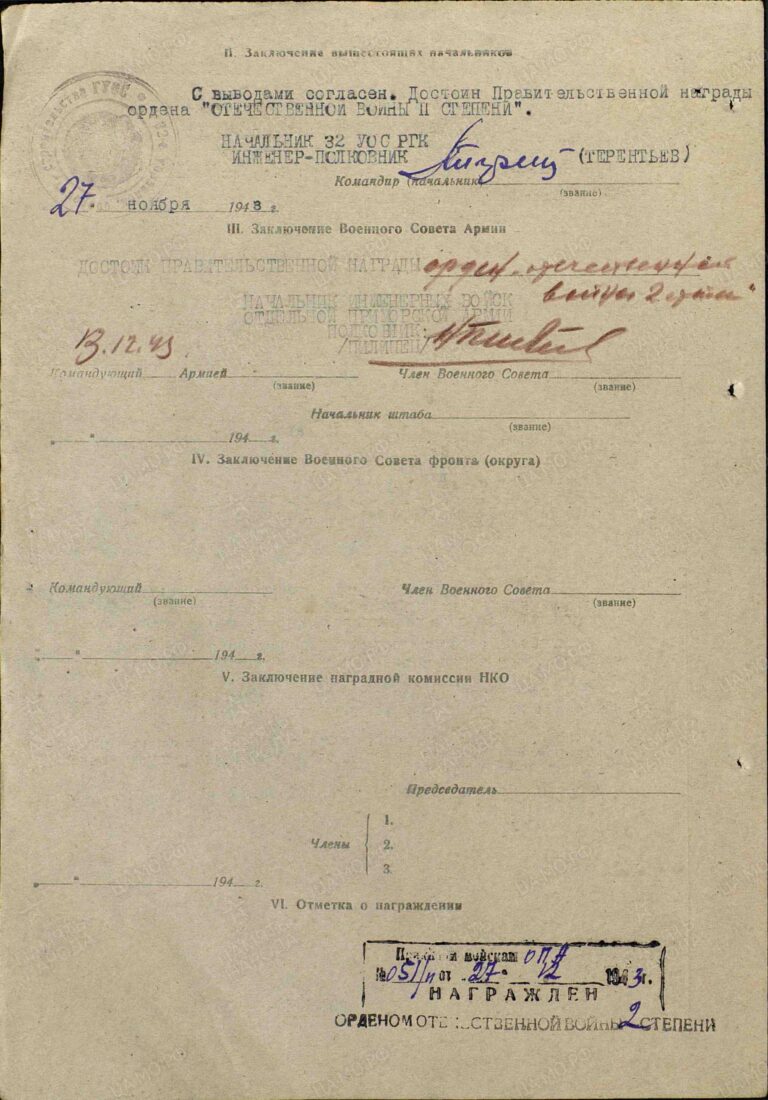 II. Заключение вышестоящих начальников
С выводами согласен. Достоин Правительственной награды
ордена "ОТЕЧЕСТВЕННОЙ ВОЙНЫ II СТЕПЕНИ".
НАЧАЛЬНИК 32 УОС РГК
ИНЖЕНЕР-ПОЛКОВНИК (ТЕРЕНТЬЕВ)
Командир (начальник)
(звание)
27. ноября 1943 г.
III. Заключение Военного Совета Армии
ДОСТОИН ПРАВИТЕЛЬСТВЕННОЙ НАГРАДЫ орден „отечественная
война 2 степ"
НАЧАЛЬНИК ИНЖЕНЕРНЫХ ВОЙСК
ОТДЕЛЬНОЙ ПРИМОРСКОЙ АРМИИ
ПОЛКОВНИК:
13.12.43
Командующий Армией Член Военного Совета
(звание) (звание)
Начальник штаба
(звание)
„ " 194 г.
IV. Заключение Военного Совета фронта (округа)
Командующий Член Военного Совета
(звание) (звание)
„ " 194 г.
V. Заключение наградной комиссии НКО
Председатель
1.
Члены 2.
3.
„ " 194 г.
VI. Отметка о награждении
войскам ОПА
№ 051/н от 27. 12 1943 г.
НАГРАЖДЕН
ОРДЕНОМ ОТЕЧЕСТВЕННОЙ ВОЙНЫ 2 СТЕПЕНИ